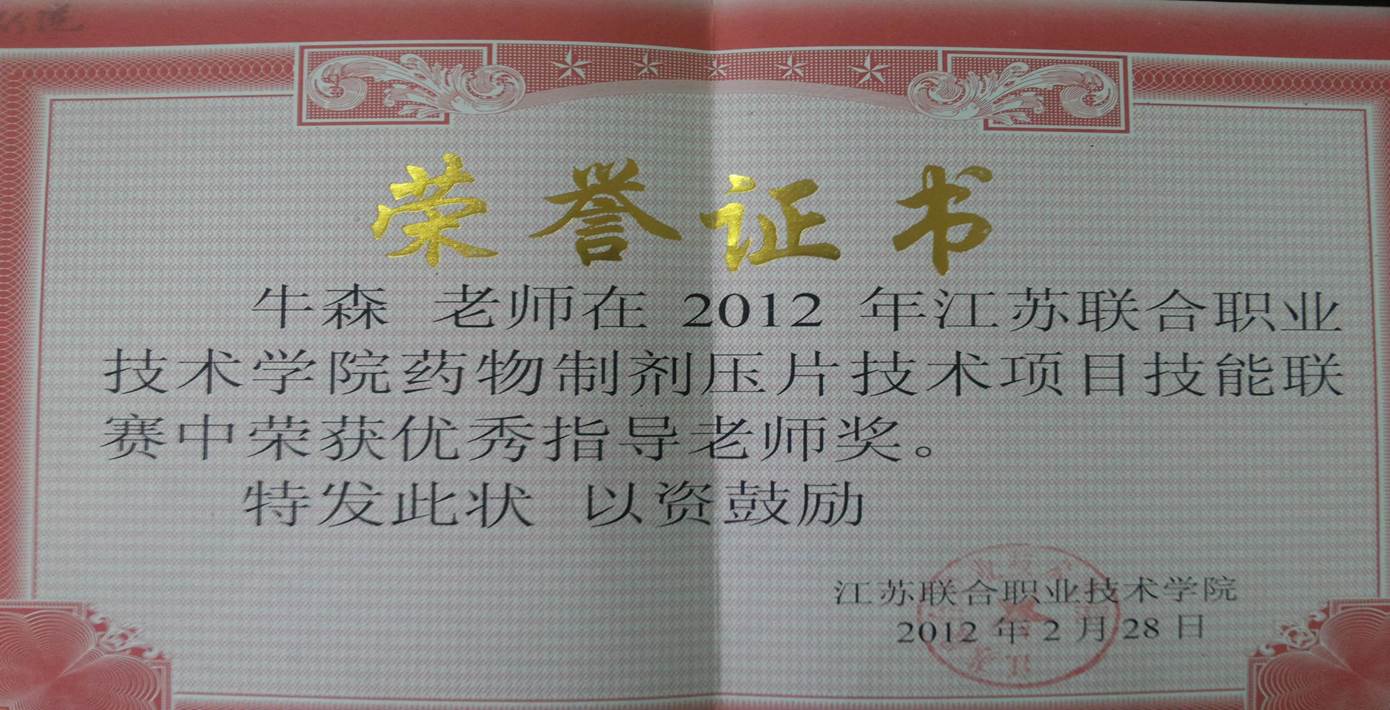 荣誉证书
牛森 老师在 2012 年江苏联合职业
技术学院药物制剂压片技术项目技能联
赛中荣获优秀指导老师奖。
特发此状 以资鼓励
江苏联合职业技术学院
2012 年 2 月 28 日